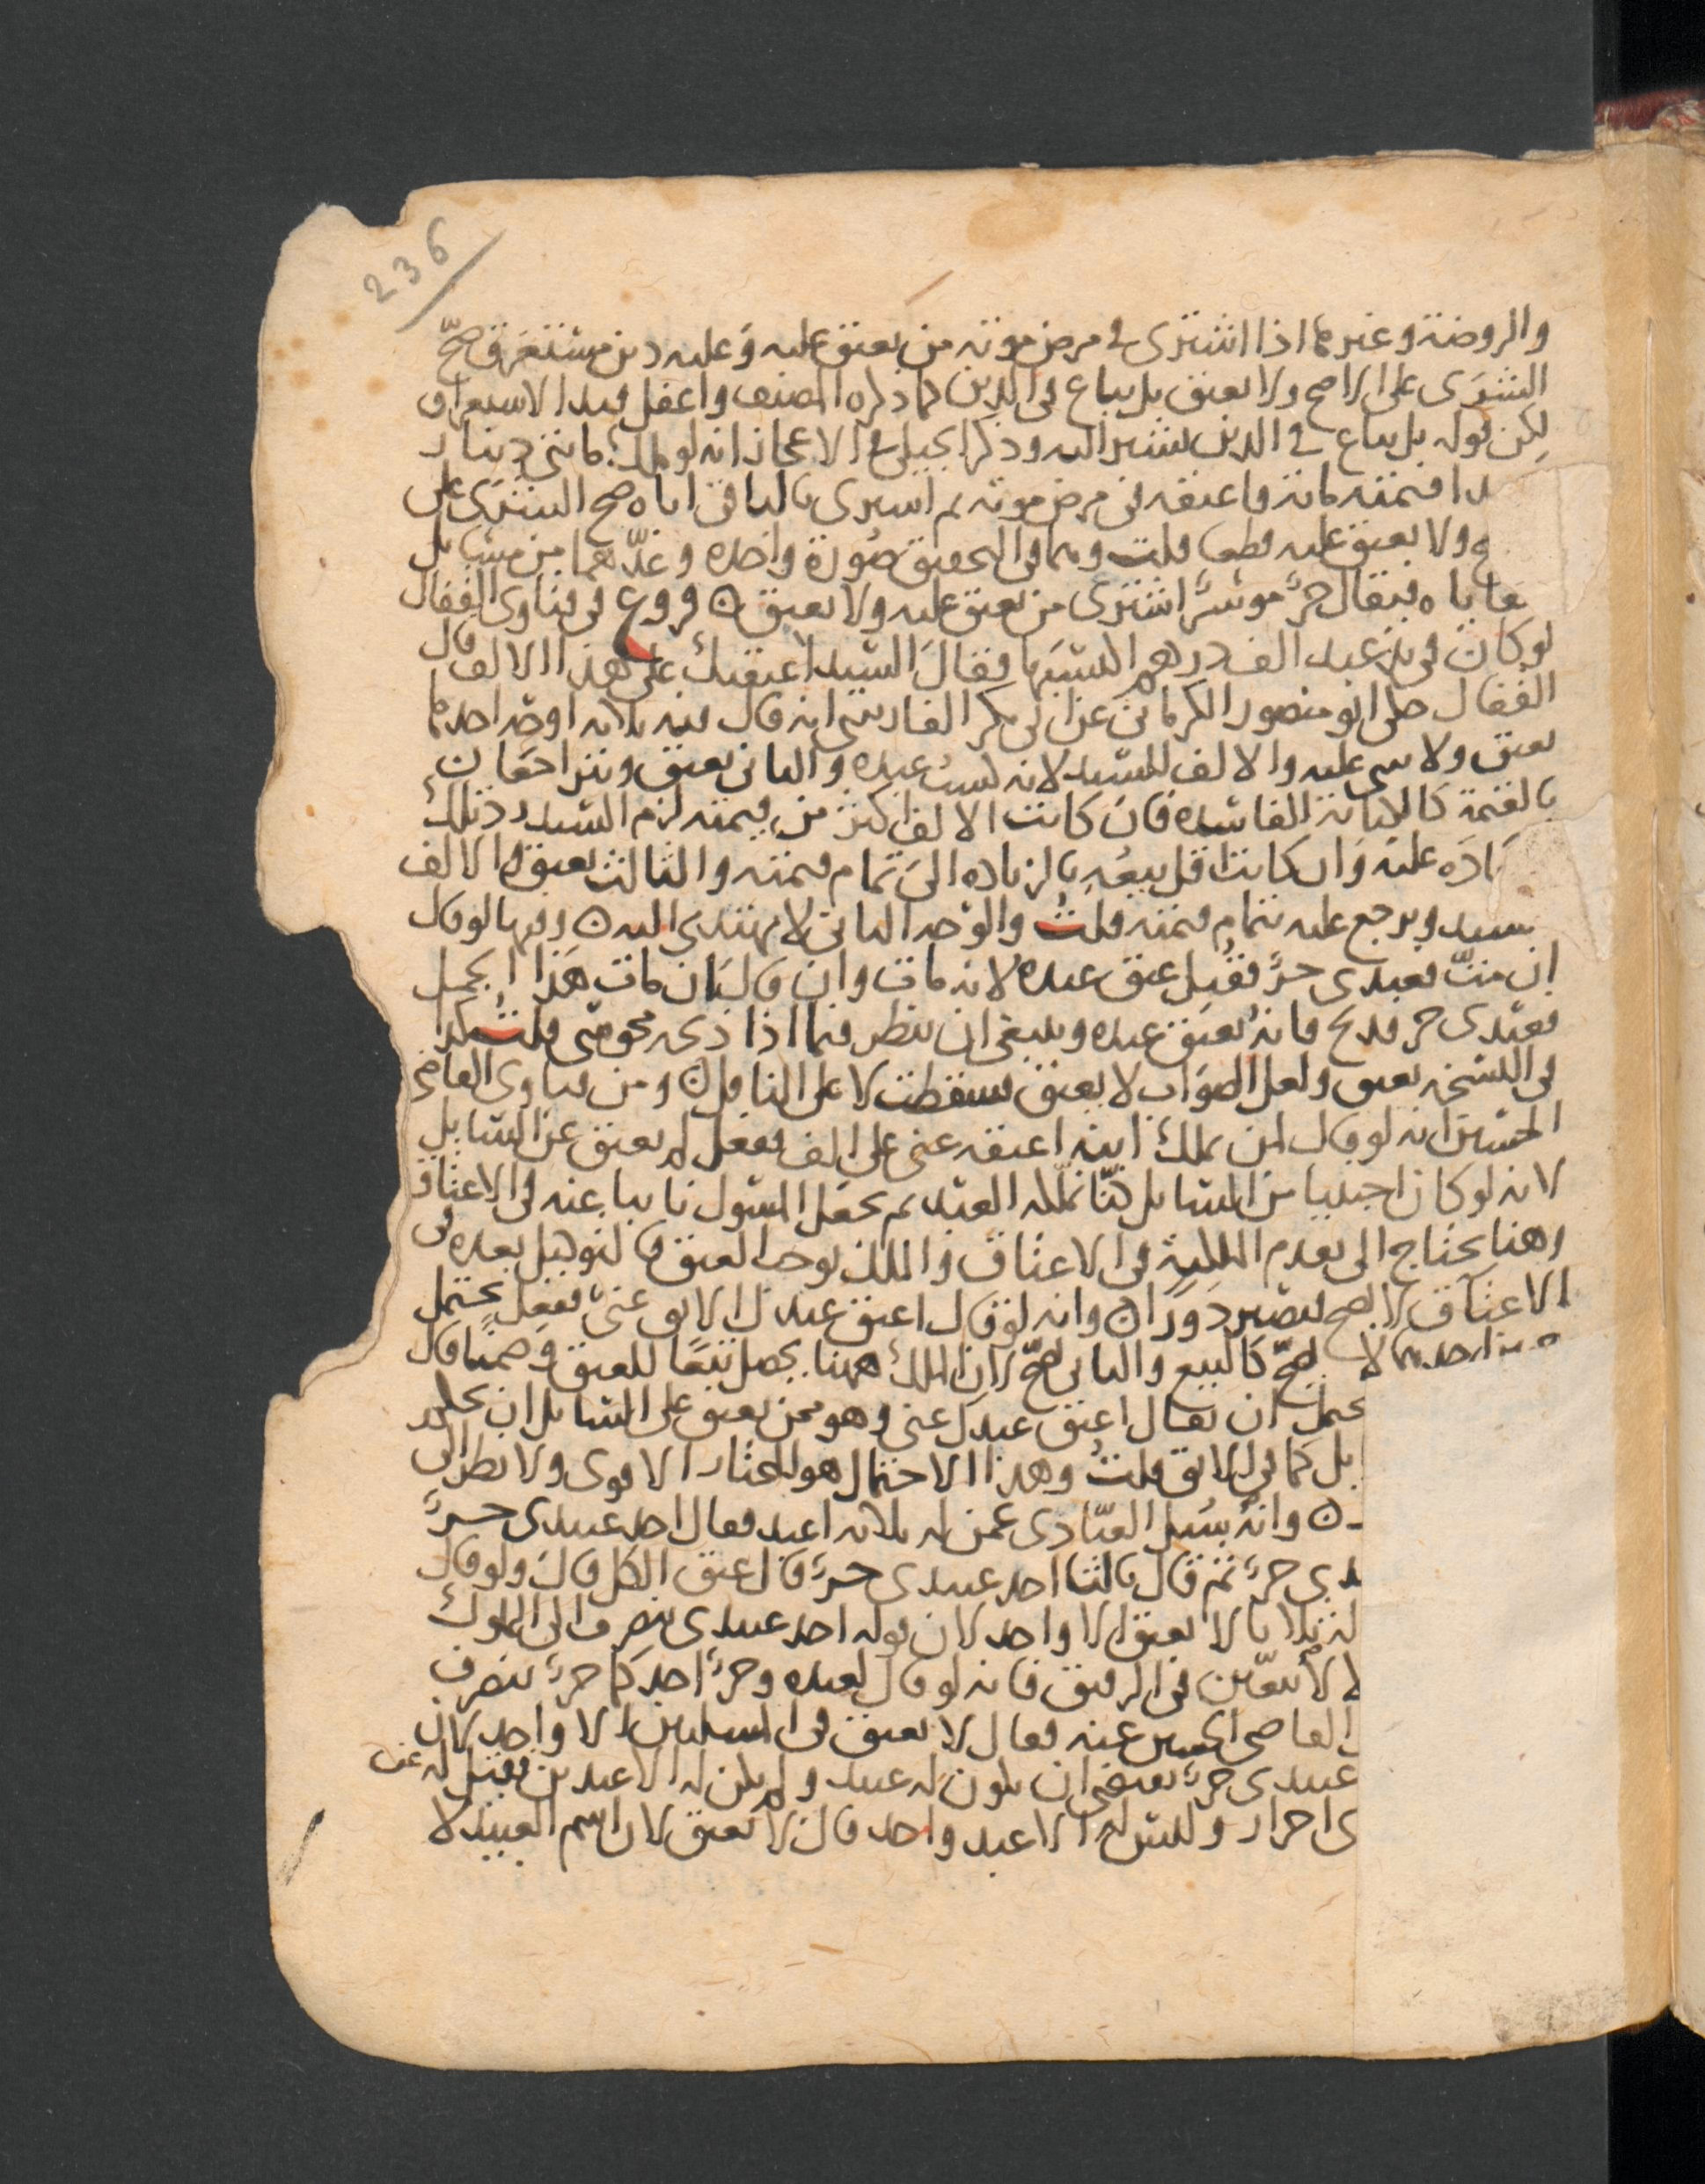 236
والروضة وغيرهما اذا اشترى في مرض موته من يعتق عليه وعليه دين مستغرق صحّ
الشرى على الاصح ولا يعتق بل يباع في الدين كما ذكره المصنف واغفل قيد الاستغراق
لكن قوله بل يباع في الدين يشير اليه وذكر الجيلي في الاعجاز انه لو ملك مايتي دينار
قيمته مائة فاعتقه في مرض موته ثم اشترى بالباقي اباه صح الشرى على
ولا يعتق عليه قطعا قلت وهما في التحقيق صورة واحدة وعدّهما من مسايل
فيقال حرّ موسر اشترى من يعتق عليه ولا يعتق ٥ فروع في فتاوى القفال
لو كان في يد عبد الف درهم اكتسبها فقال السيد اعتقتك على هذا الالف قال
القفال حكى ابو منصور الكرماني عن ابي بكر الفارسي انه قال فيه ثلاثة اوجه احدها
يعتق ولا شي عليه والالف للسيد لانه كسب عبده والثاني يعتق ويتراجعان
بالقيمة كالكتابة الفاسدة فان كانت الالف اكثر من قيمته لزم السيد رد تلك
عليه وان كانت اقل يتبعه بالزياده الى تمام قيمته والثالث يعتق والالف
ويرجع عليه بتمام قيمته قلت والوجه الثاني لا يهتدى اليه ٥ وفيها لو قال
ان متّ فعبدي حرّ فقتل عتق عبده لانه مات وان قال ان مات هذا الجمل
فعبدي حر فذبح فانه يعتق عبده وينبغي ان ينظر فيما اذا ذكى مجوسي قلت كذا
في النسخة يعتق ولعل الصواب لا يعتق فسقطت لا على الناقل ٥ ومن فتاوى القاضي
الحسين انه لو قال لمن يملك ابنه اعتقه عني على الف ففعل لم يعتق عن السايل
لانه لو كان اجنبيا من السايل كنا نملكه العبد ثم نجعل المسول نايبا عنه في الاعتاق
وهنا يحتاج الى تقدم الملكية في الاعتاق والملك يوجب العتق فالتوكيل بعده في
الاعتاق لا يصح فيصير دورا ٥ وانه لو قال اعتق عبدك الابق عني ففعل يحتمل
احدهما لا يصحّ كالبيع والثاني يصحّ لان الملك ههنا يحصل تبعا للعتق وضمنا قال
يحتمل ان يقال اعتق عبدك عني وهو ممن يعتق على السايل ان
بل كما في الابق قلت وهذا الاحتمال هو المختار الاقوى ولا نظر الى
٥ وانه سُيل العبّادي عمن له ثلاثة اعبد فقال احد عبيدي حرّ
حرّ ثم قال ثالثا احد عبيدي حرّ قال عتق الكل قال ولو قال
ثلاثا لا يعتق الا واحد لان قوله احد عبيدي ينصرف الى المملوك
لا يتعيّن في الرقيق فانه لو قال لعبده وحرّ احدكما حرّ ينصرف
القاضي الحسين عنه فقال لا يعتق في المسلتين الا واحد لان
عبيدي حرّ يقتضي ان يكون له عبيد ولم يكن له الا عبدين فقيل له عن
احرار وليس له الا عبد واحد قال لا يعتق لان اسم العبيد لا